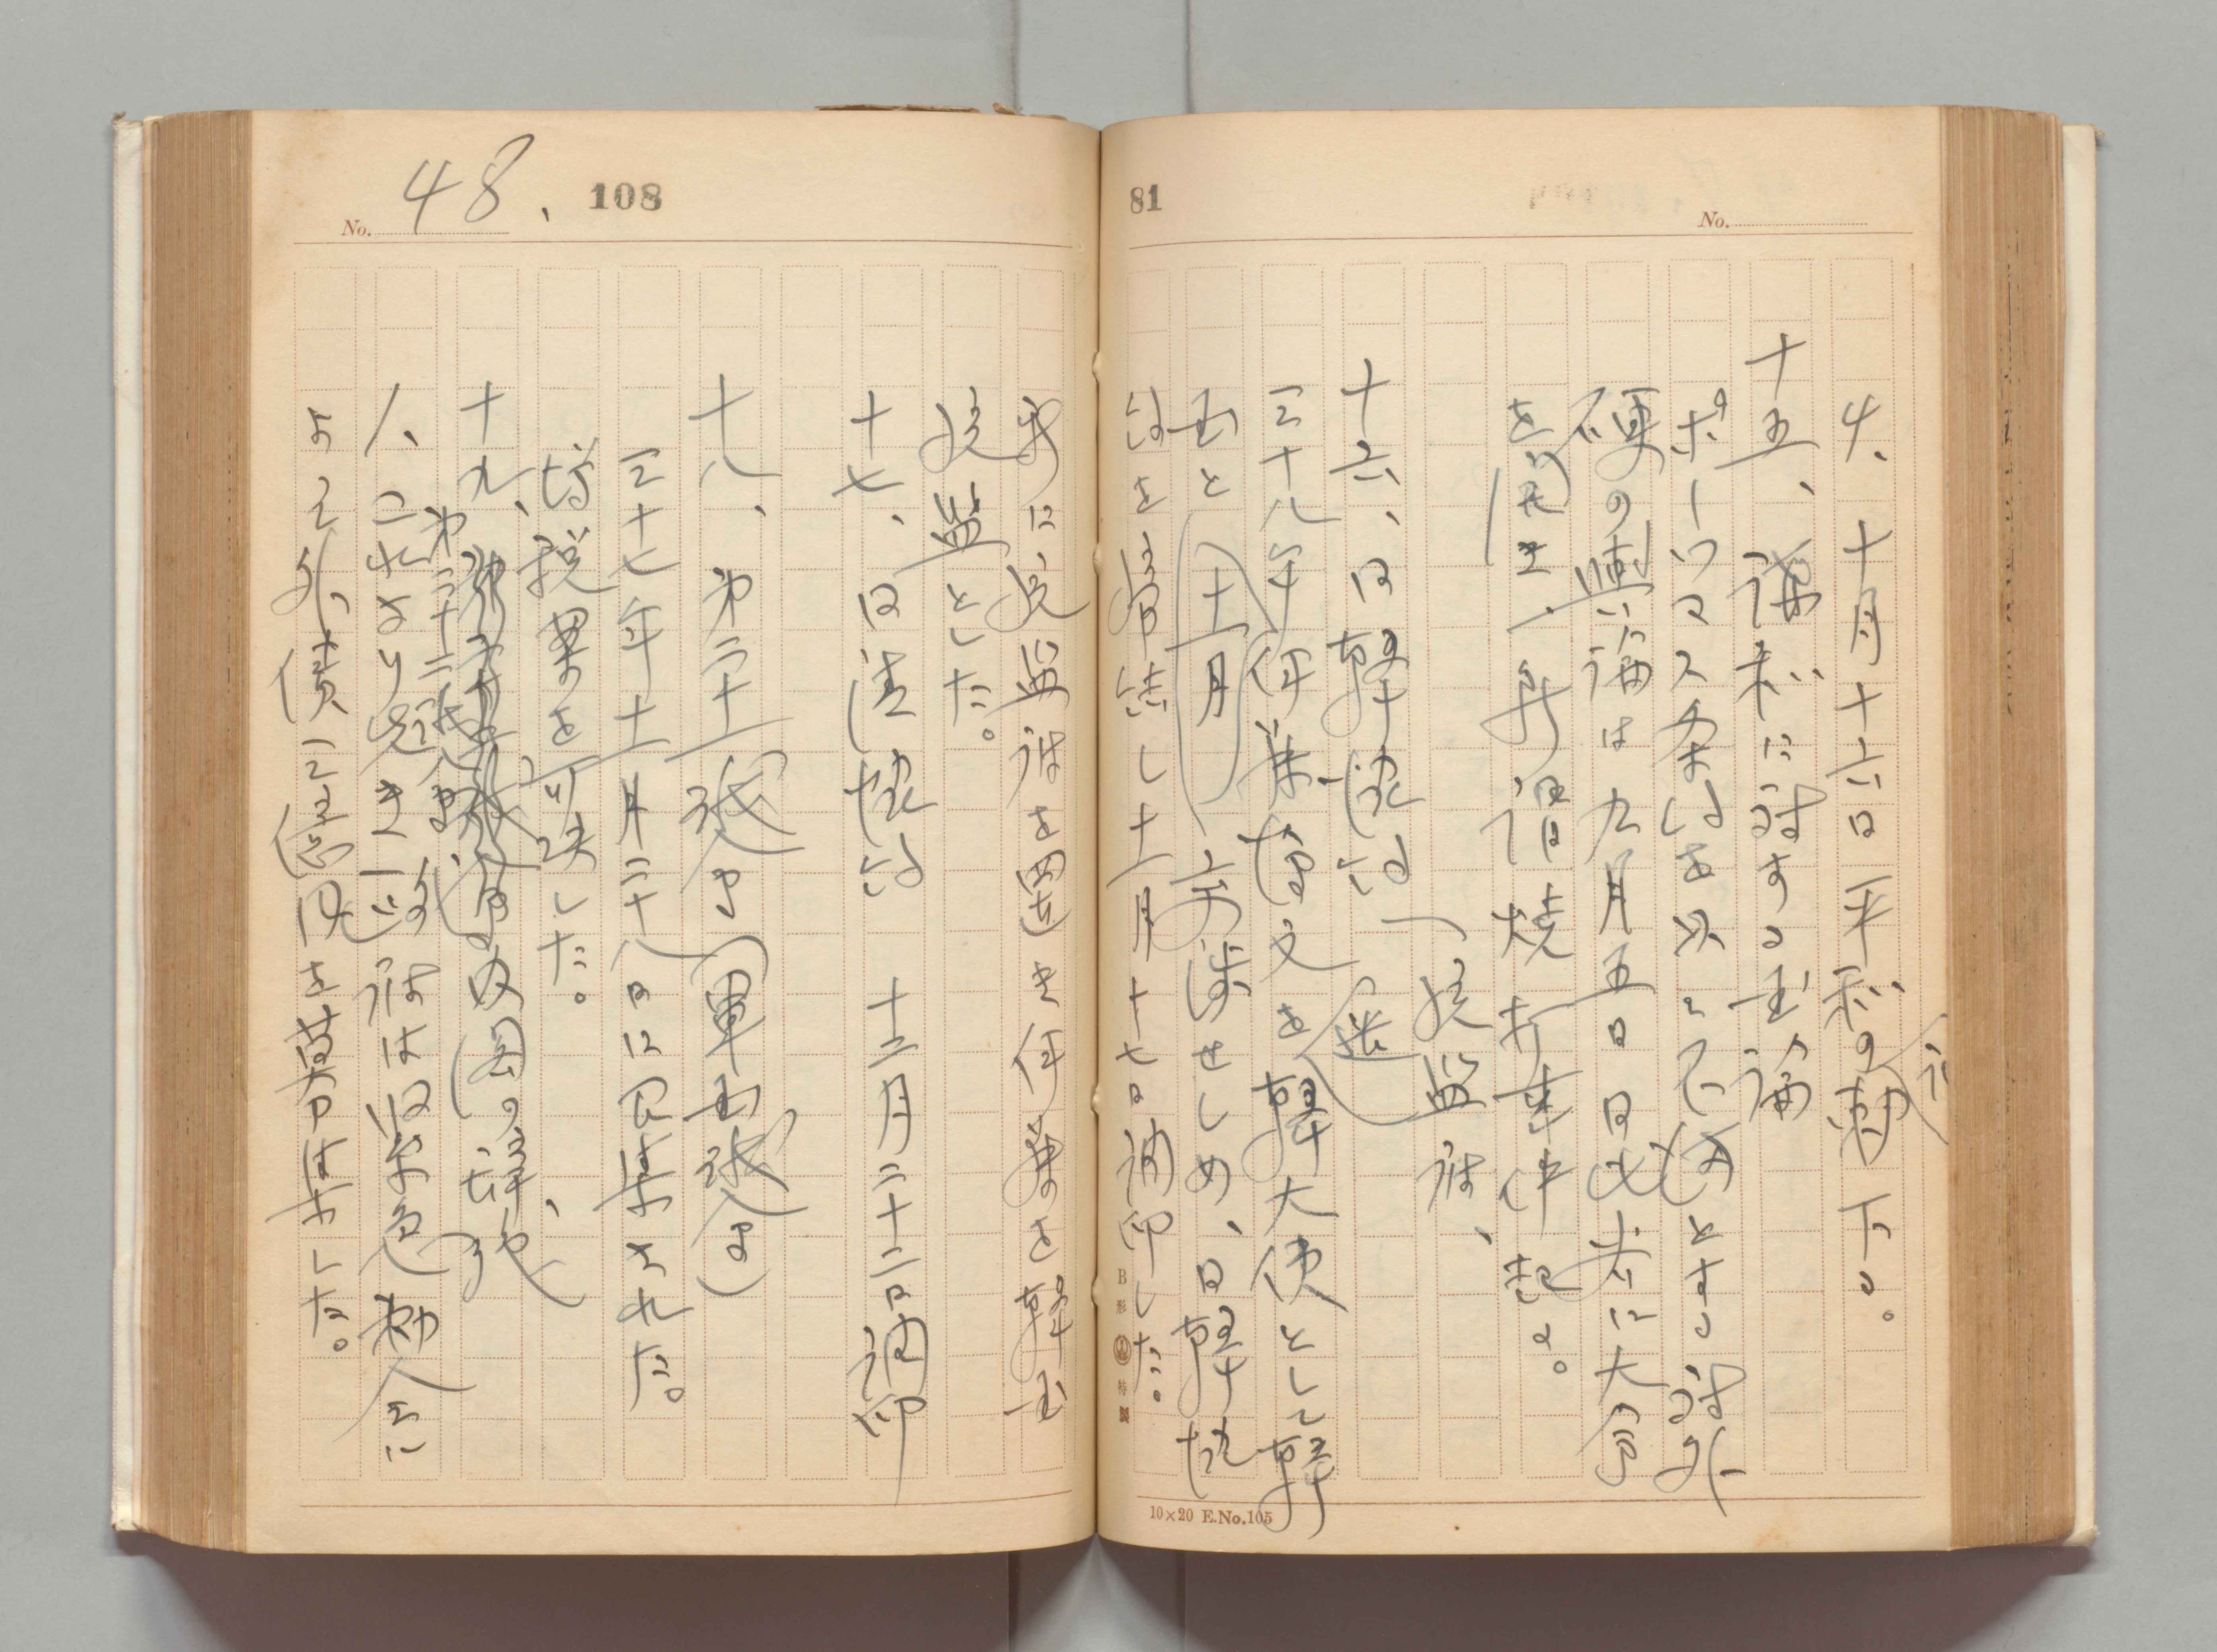 81
No.
4、十月十六日平和の詔勅下る。
十五、講和に対する世論
ポーツマス条約を以て不満とする対外
硬の輿論は九月五日日比谷に大会
を開き、
焼打事件起る。
統監府、
十六、日韓協約
三十八年伊藤博文を韓大使として韓
国と(十一月)交渉せしめ、日韓協
約を締結し十一月十七日調印した。
B形 特製
10×20 E.No.105
No. 48. 108
京に統監府を置き伊藤を韓国
統監とした。
十七、日清協約 十二月二十二日調印
十八、第二十一議会(軍国議会)
三十七年十一月二十八日に召集された。
増税案を可決した。
十九、
第二十二議会
1、これより先き政府は緊急勅令に
よって外債
を募集した。